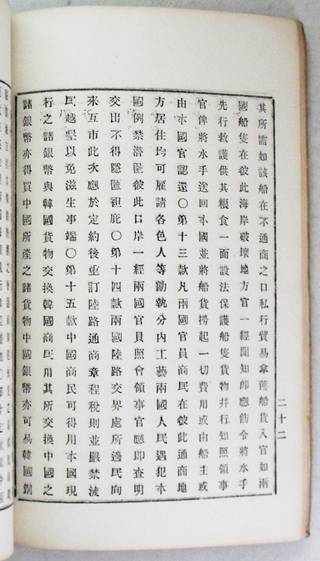 其所需如該船在不通商之口私行貿易拿獲船貨入官如兩
國船隻在彼此海岸破壞地方官一經聞知卽應飭令將水手
先行救護供其粮食一面設法保護船隻貨物并行知照領事
官俾將水手送回本國並將船貨撈起一切費用或由船主或
由本國官認還〇第十三款凡兩國官員商民在彼此通商地
方居住均可雇請各色人等勷執分內工藝兩國人民遇犯本
國例禁潛匿彼此口岸一經兩國官員照會領事官應即查明
交出不得隱匿袒庇〇第十四款兩國陸路交界處所邊民向
來互市此次應於定約後重訂陸路通商章程稅則並嚴禁流
民越墾以免滋生事端〇第十五款中國商民可得用本國現
行之諸銀幣與韓國貨物交換韓國商民用其所交換中國之
諸銀幣亦得買中國所產之諸貨物中國銀幣亦可易韓國銅
二十二